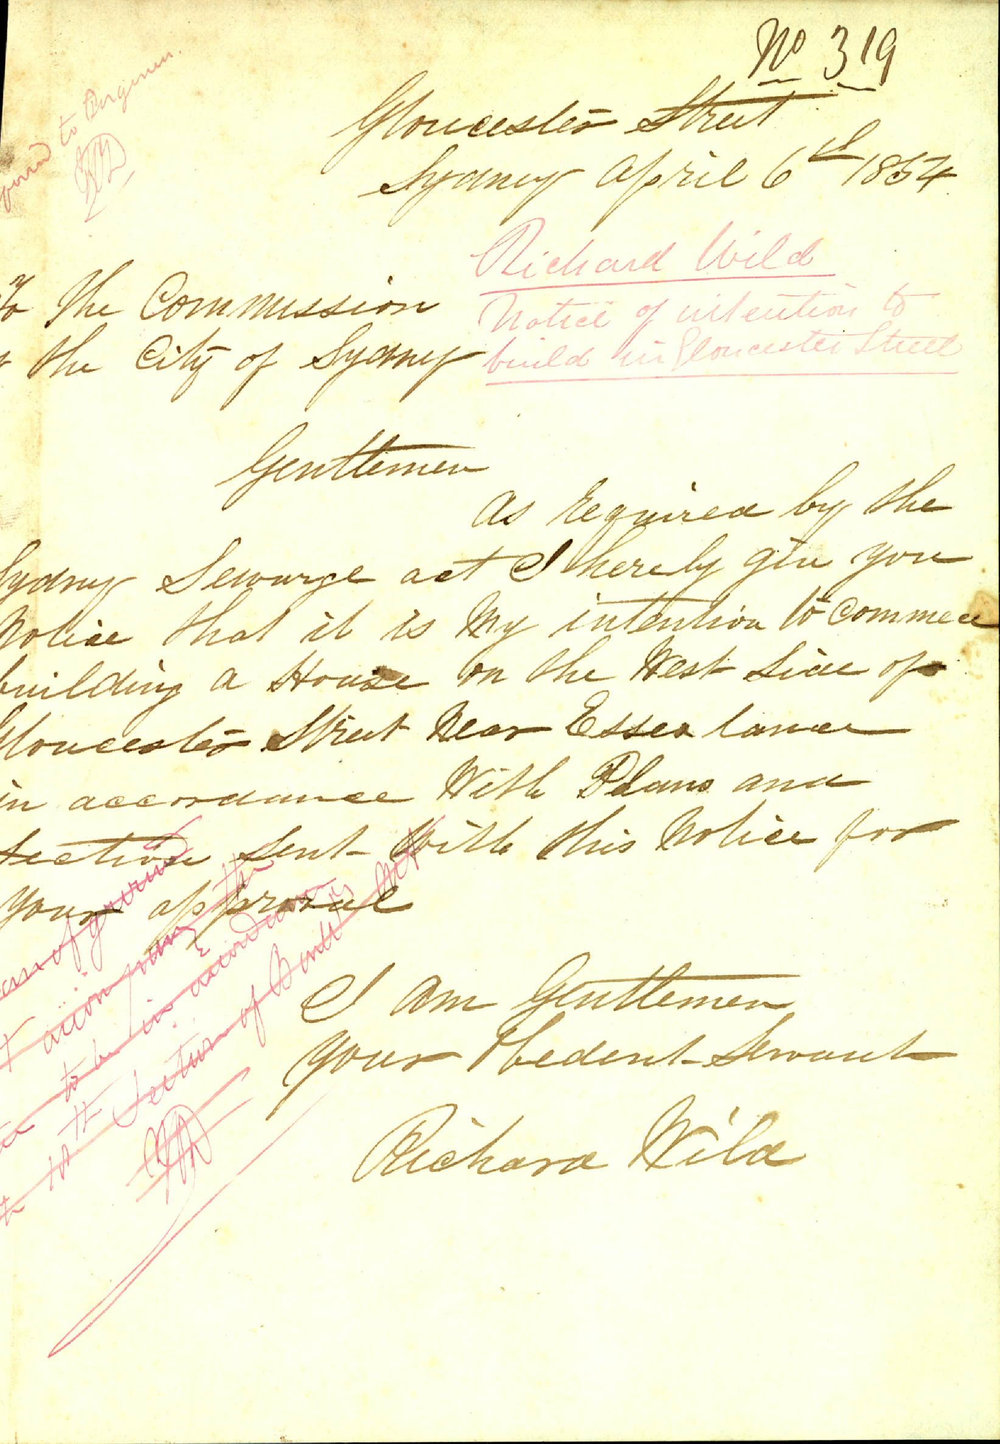 No 319
to
Gloucester Street
Sydney April 6th 1854
Richard Wild
Notice of intention to
build in Gloucester Street
To The Commission
the City of Sydney
Gentlemen
As required by the
Sydney Sewarge act I hereby give you
Notice that it is My intention to Commece
building a House on the West Side of
Gloucester Street Near Essex lane
in accordance With Plans and
Section Sent With this Notice for
your approval
I Am Gentlemen
Your Obedent Servant
Richard Wild
of
to be in accordance
Section of